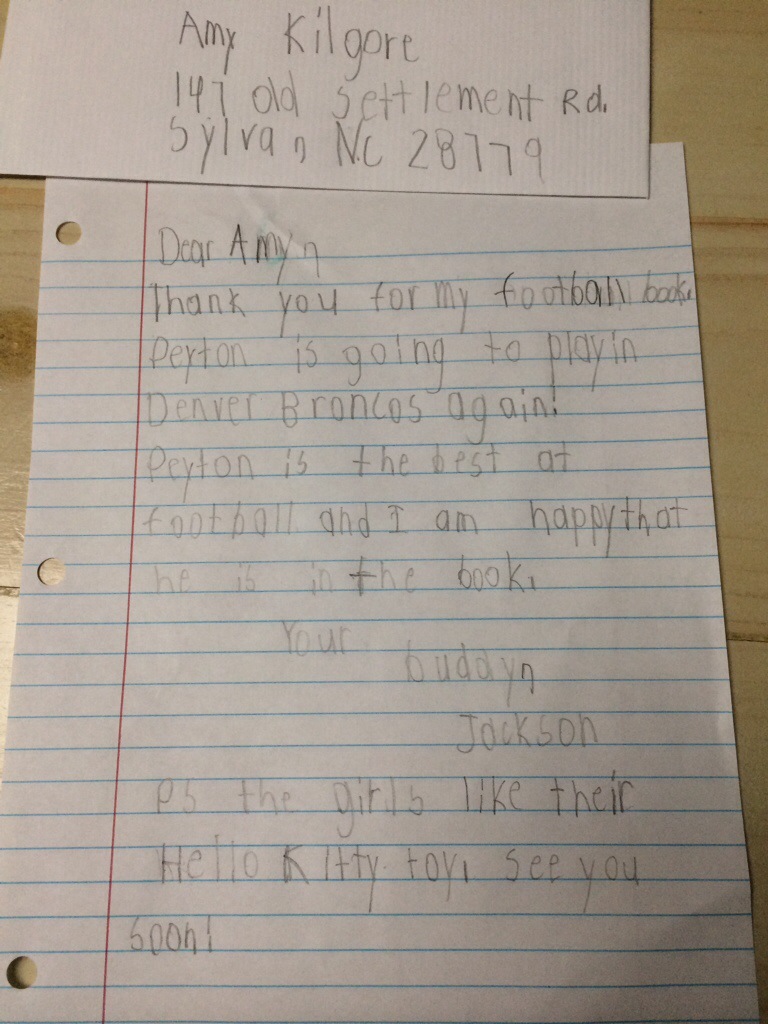 Amy Kilgore
147 old settlement Rd.
Sylva, NC 28779
Dear Amy,
Thank you for my football book.
Peyton is going to play in
Denver Broncos again!
Peyton is the best at
football and I am happy that
he is in the book.
Your
buddy,
Jackson
PS the girls like their
Hello Kitty toy. See you
soon!